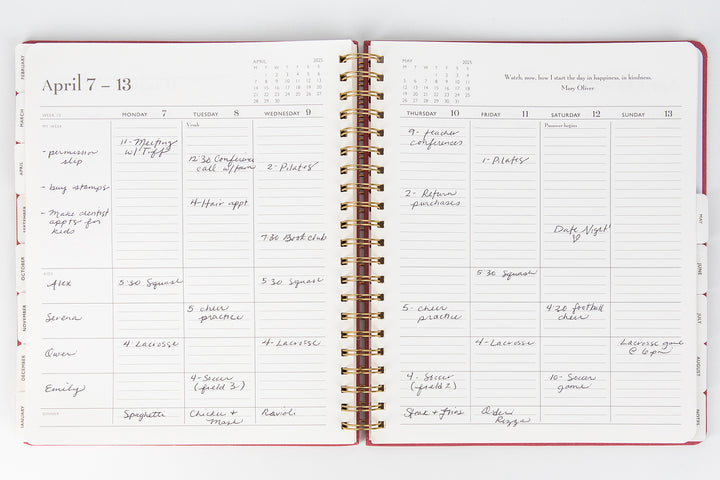 April 7 – 13
APRIL 2025
M T W T F S S
1 2 3 4 5 6
7 8 9 10 11 12 13
14 15 16 17 18 19 20
21 22 23 24 25 26 27
28 29 30
WEEK 15
MONDAY 7
TUESDAY 8
WEDNESDAY 9
MY WEEK
- permission
slip
- buy stamps
- Make dentist
appts for
kids
11- Meeting
w/ Tiff
Vesak
12:30 Conference
call w/ team
4- Hair appt.
2- Pilates
7:30 Book Club
KIDS
Alex
5:30 Squash
5:30 Squash
Serena
5- cheer
practice
Owen
4- Lacrosse
4- Lacrosse
Emily
4- Soccer
(field 3)
DINNER
Spaghetti
Chicken +
Mash
Ravioli
FEBRUARY
MARCH
APRIL
SEPTEMBER
OCTOBER
NOVEMBER
DECEMBER
JANUARY
MAY 2025
M T W T F S S
1 2 3 4
5 6 7 8 9 10 11
12 13 14 15 16 17 18
19 20 21 22 23 24 25
26 27 28 29 30 31
Watch, now, how I start the day in happiness, in kindness.
Mary Oliver
THURSDAY 10
FRIDAY 11
SATURDAY 12
SUNDAY 13
9- teacher
conferences
2- Return
purchases
1- Pilates
Passover begins
Date Night!
5:30 Squash
5- cheer
practice
4:30 football
cheer
4- Lacrosse
Lacrosse game
@ 6pm
4- Soccer
(field 2)
10- Soccer
game
Steak + fries
Order
Pizza
MAY
JUNE
JULY
AUGUST
NOTES